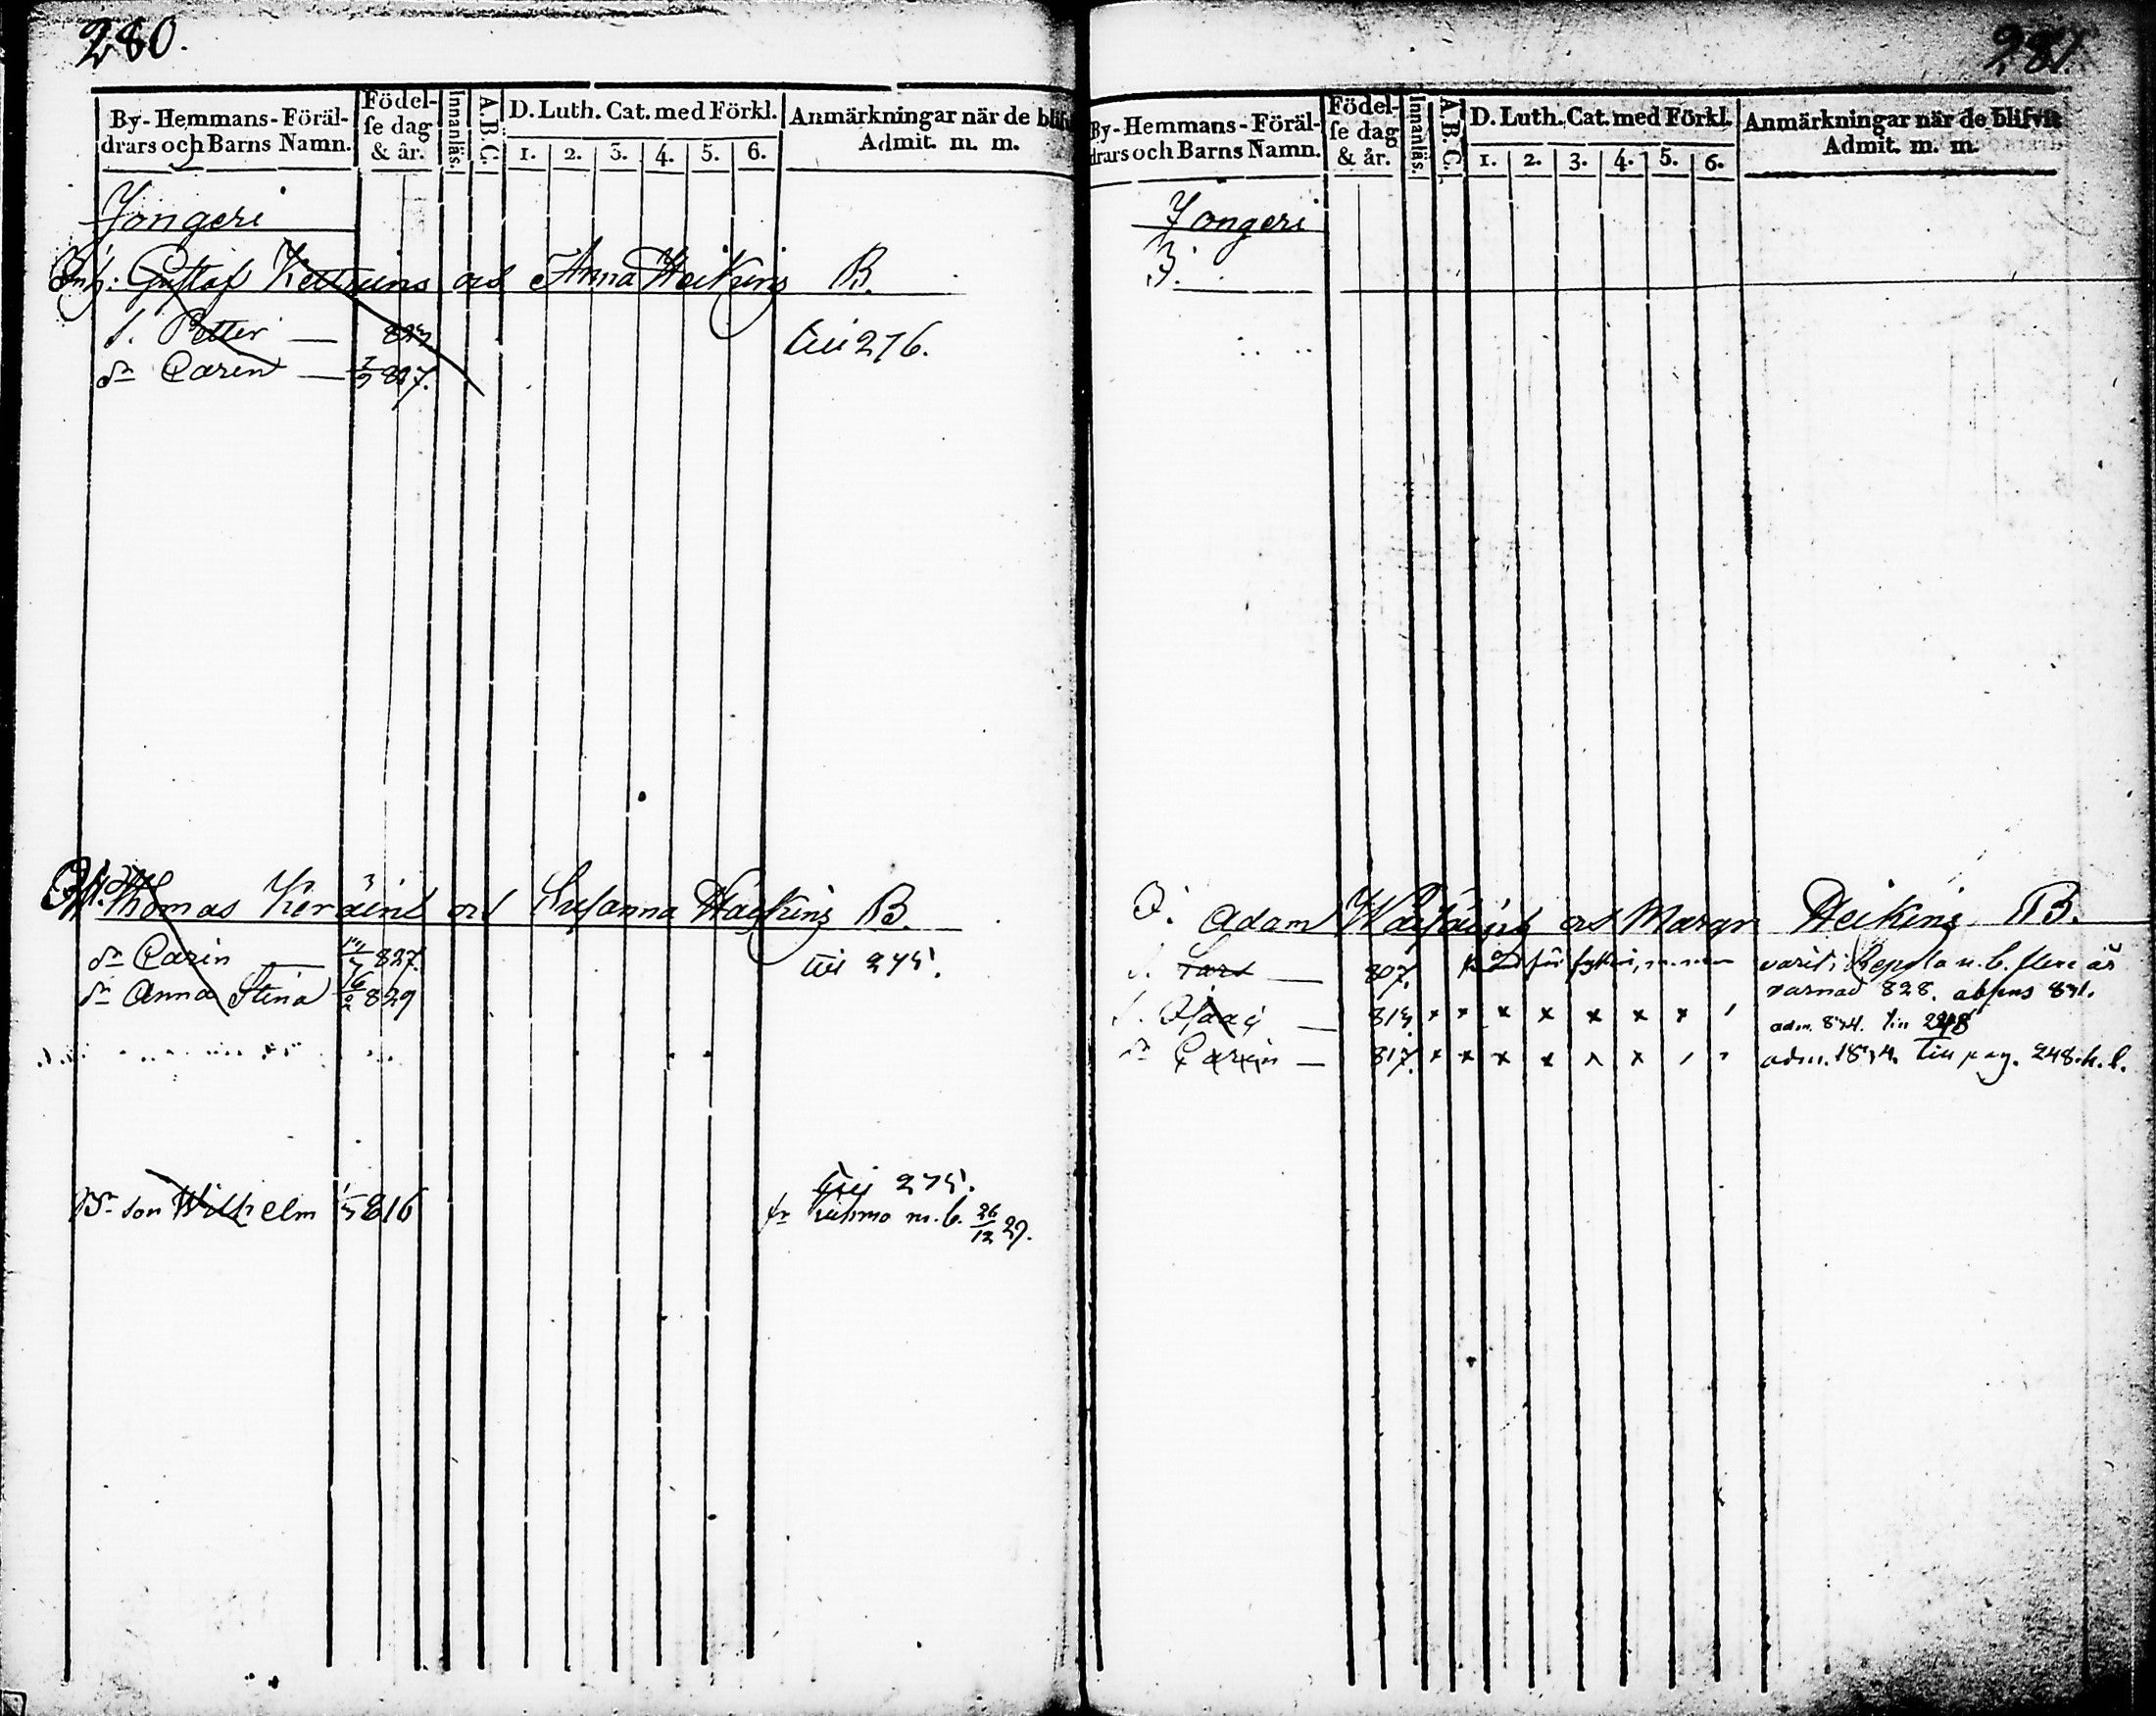 280.
By-Hemmans-Föräl-
drars och Barns Namn.
Födel-
ſe dag
& år.
Innanläs.
A.B.C.
D. Luth. Cat. med Förkl.
1. 2. 3. 4. 5. 6.
Anmärkningar när de
Admit. m. m.
Jongeri
Gustaf och Anna Heikins B.
S. Petter — 823
Dr Carin — 827.
Till 276.
Thomas Keräins och Susanna B.
Dr Carin — 827.
Till 275.
Dr Anna Stina 16/2 829
Till 275.
son Wilhelm 816
m. b. 26/12 29.
281.
By-Hemmans-Föräl-
drars och Barns Namn.
Födel-
ſe dag
& år.
Innanläs.
A.B.C.
D. Luth. Cat. med Förkl.
1. 2. 3. 4. 5. 6.
Anmärkningar när de blifvit
Admit. m. m.
Jongeri
3.
Adam och Margr Heikins B.
S. Lars — 807. varit i m. b. flere år
varnad 828. absens 831.
S. Isaac — 813. x x x x x x x adm. 834. Till 248
Dr Carin — 817. x x x x x x adm. 1834. Till pag. 248. h. b.